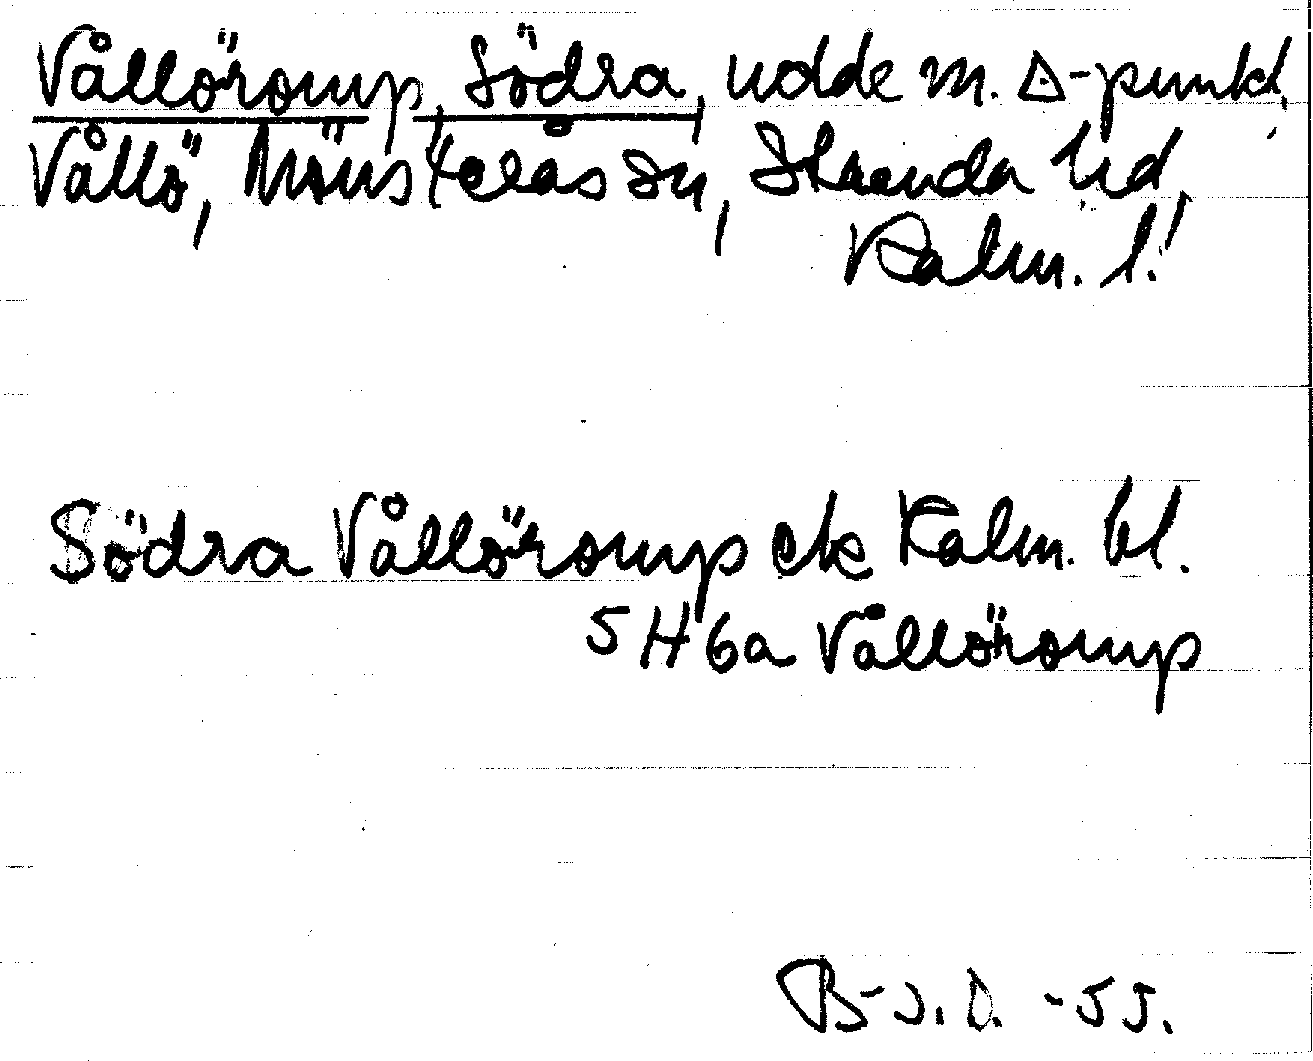 Vållöromp, Södra, udde m. Δ-punkt,
Vållö, Mönsterås sn, Stranda hd,
Kalm. l.!
Södra Vållöromp ek Kalm. bl.
5H6a Vållöromp
B-J.D. -55.